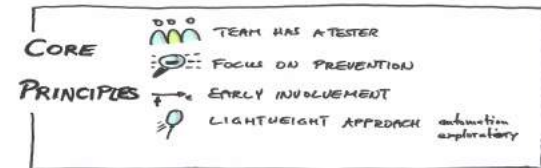 CORE
PRINCIPLES
TEAM HAS A TESTER
FOCUS ON PREVENTION
EARLY INVOLVEMENT
LIGHTWEIGHT APPROACH automation
exploratory